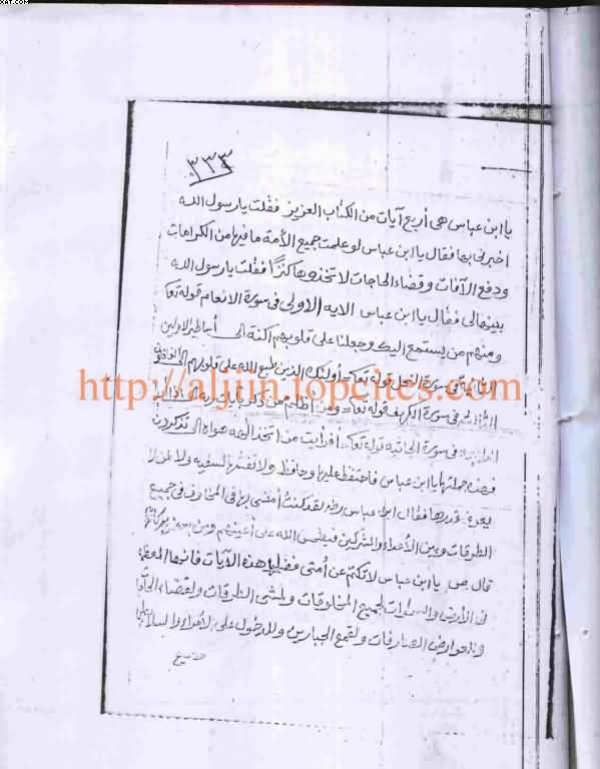 XAT.COM
٣٣٣
يا ابن عباس هى أربع آيات من الكتاب العزيز فقلت يا رسول الله
اخبرنى بها فقال يا ابن عباس لو علمت جميع الأمة ما فيها من الكرامات
ودفع الآفات وقضاء الحاجات لاتخذوها كنزًا فقلت يا رسول الله
بينها لى فقال يا ابن عباس الايه الاولى فى سورة الانعام قوله تعا
ومنهم من يستمع اليك وجعلنا على قلوبهم اكنة الى أساطير الاولين
الثانية فى سورة النحل قوله تعا أولئك الذين طبع الله على قلوبهم الى
http://aljnin.topcites.com
الثالثة فى سورة الكهف قوله تعا ومن اظلم ممن ذكر بآيات ربه
فى سورة الجاثيه قوله تعا افرايت من اتخذ الهه هواه الى تذكرون
فهذه جملتها يا ابن عباس فاحتفظ عليها وحافظ ولا تفشها لسفيه ولا لمن لا
يعرف قدرها فقال ابن عباس رضه لقد كنت أمشى بها فى المخاوف فى جميع
الطرقات وبين الأعداء والمشركين فيطمس الله على أعينهم
قال ص يا ابن عباس لا تكتم عن أمتى فضل هذه الآيات فانها المعظمة
فى الأرض والسموات لجميع المخلوقات ولمشى الطرقات ولقضاء
ولقمع الجبارين وللدخول على الأمراء والسلاطين